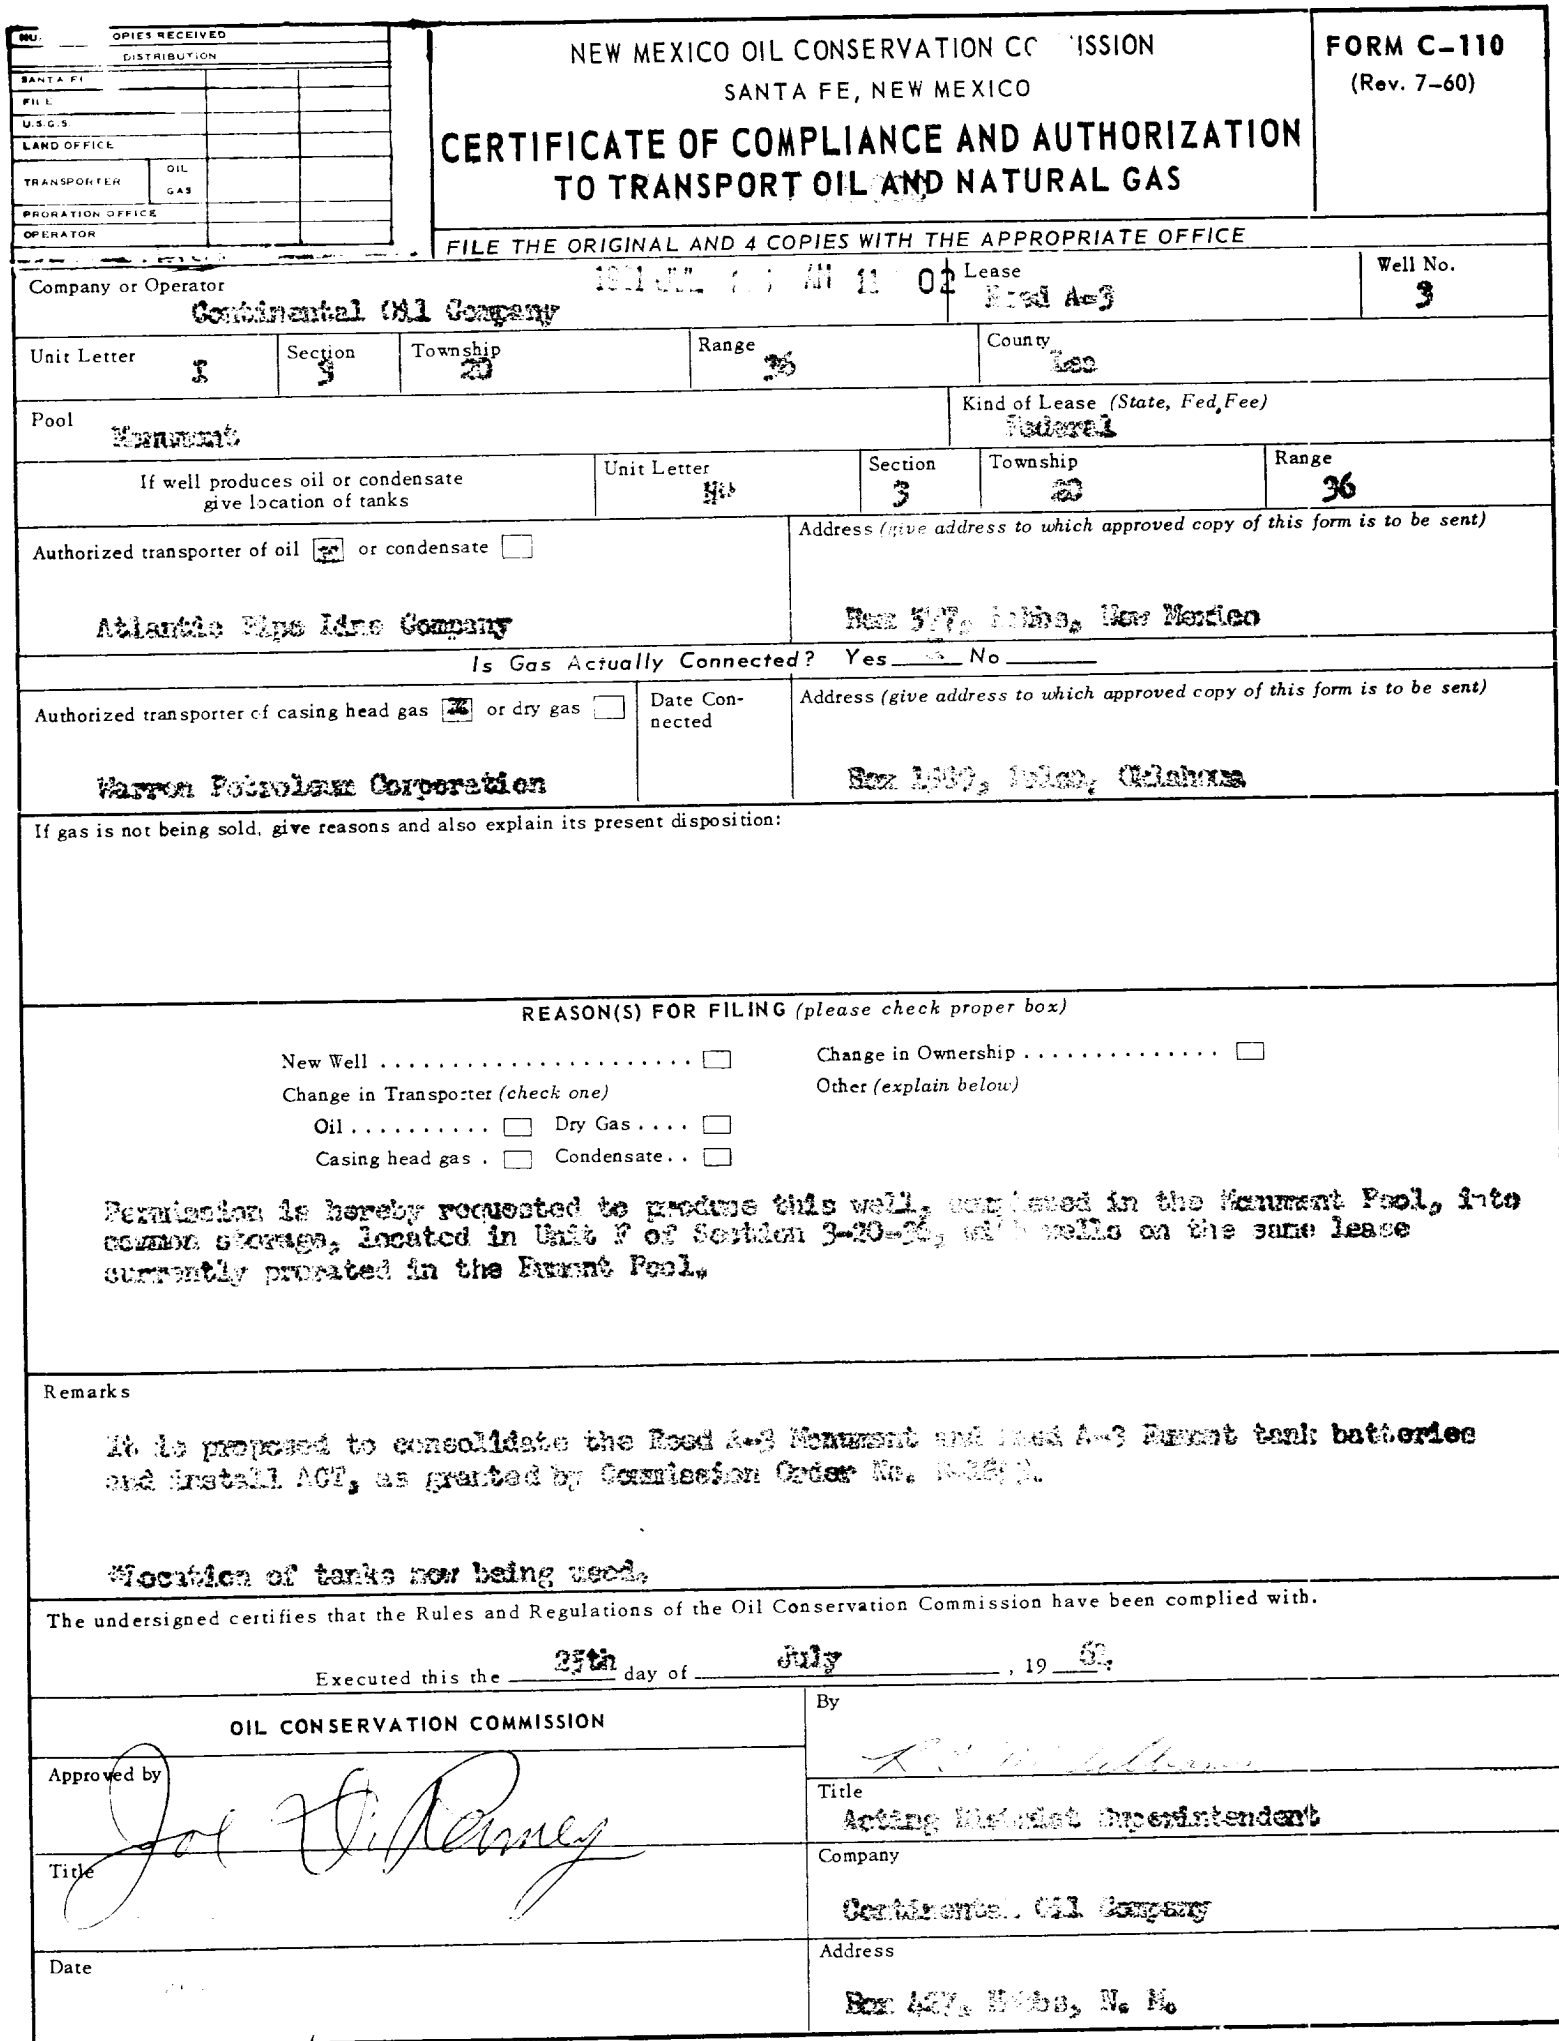 OPIES RECEIVED
DISTRIBUTION
SANTA FE
FILE
U.S.G.S.
LAND OFFICE
TRANSPORTER
OIL
GAS
PRORATION OFFICE
OPERATOR
NEW MEXICO OIL CONSERVATION CO ISSION
SANTA FE, NEW MEXICO
CERTIFICATE OF COMPLIANCE AND AUTHORIZATION
TO TRANSPORT OIL AND NATURAL GAS
FORM C-110
(Rev. 7-60)
FILE THE ORIGINAL AND 4 COPIES WITH THE APPROPRIATE OFFICE
AM 11 02
Company or Operator
Continental Oil Company
Lease
Reed A-3
Well No.
3
Unit Letter
I
Section
3
Township
20
Range
36
County
Lea
Pool
Monument
Kind of Lease (State, Fed, Fee)
Federal
If well produces oil or condensate
give location of tanks
Unit Letter
Section
3
Township
20
Range
36
Authorized transporter of oil or condensate
Address (give address to which approved copy of this form is to be sent)
Atlantic Pipe Line Company
Box Hobbs, New Mexico
Is Gas Actually Connected? Yes No
Authorized transporter of casing head gas or dry gas
Date Con-
nected
Address (give address to which approved copy of this form is to be sent)
Warren Petroleum Corporation
Box Tulsa, Oklahoma
If gas is not being sold, give reasons and also explain its present disposition:
REASON(S) FOR FILING (please check proper box)
New Well
Change in Ownership
Change in Transporter (check one)
Other (explain below)
Oil
Dry Gas
Casing head gas
Condensate
Permission is hereby requested to produce this well, completed in the Monument Pool, into
common storage, located in Unit F of Section 3-20-36, with wells on the same lease
currently prorated in the Eumont Pool.
Remarks
It is proposed to consolidate the Reed A-3 Monument and Reed A-3 Eumont tank batteries
and install ACT, as granted by Commission Order No.
*Location of tanks now being used.
The undersigned certifies that the Rules and Regulations of the Oil Conservation Commission have been complied with.
Executed this the 25th day of July, 19
OIL CONSERVATION COMMISSION
By
Approved by
Joe D. Ramey
Title
Acting District Superintendent
Title
Company
Continental Oil Company
Date
Address
Box 427, Hobbs, N. M.